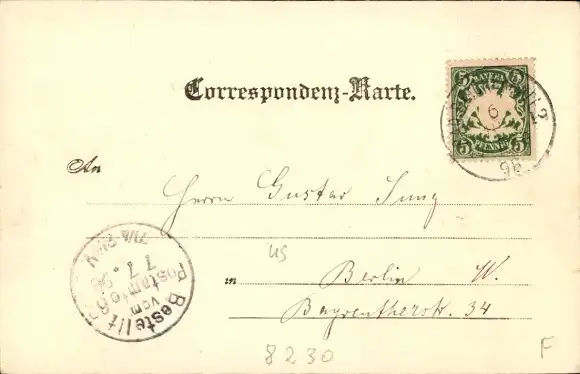 Correspondenz-Karte.
5 BAYERN 5
5 PFENNIG 5
6
96
2
An
Herrn Gustav Jung
in Berlin W.
Bayreutherstr. 34
Bestellt
vom
Postamte 62
7 7 96
7¼-8¼V
us
8230
F